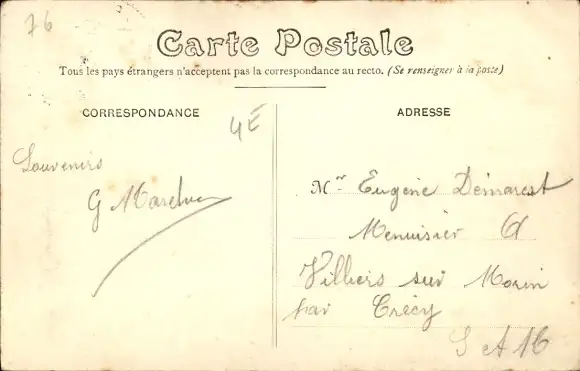 76
Carte Postale
Tous les pays étrangers n'acceptent pas la correspondance au recto. (Se renseigner à la poste)
CORRESPONDANCE
4E
Souvenirs
G
ADRESSE
Mr Eugène Demarest
Menuisier
Villiers sur Morin
par Crécy
S et M